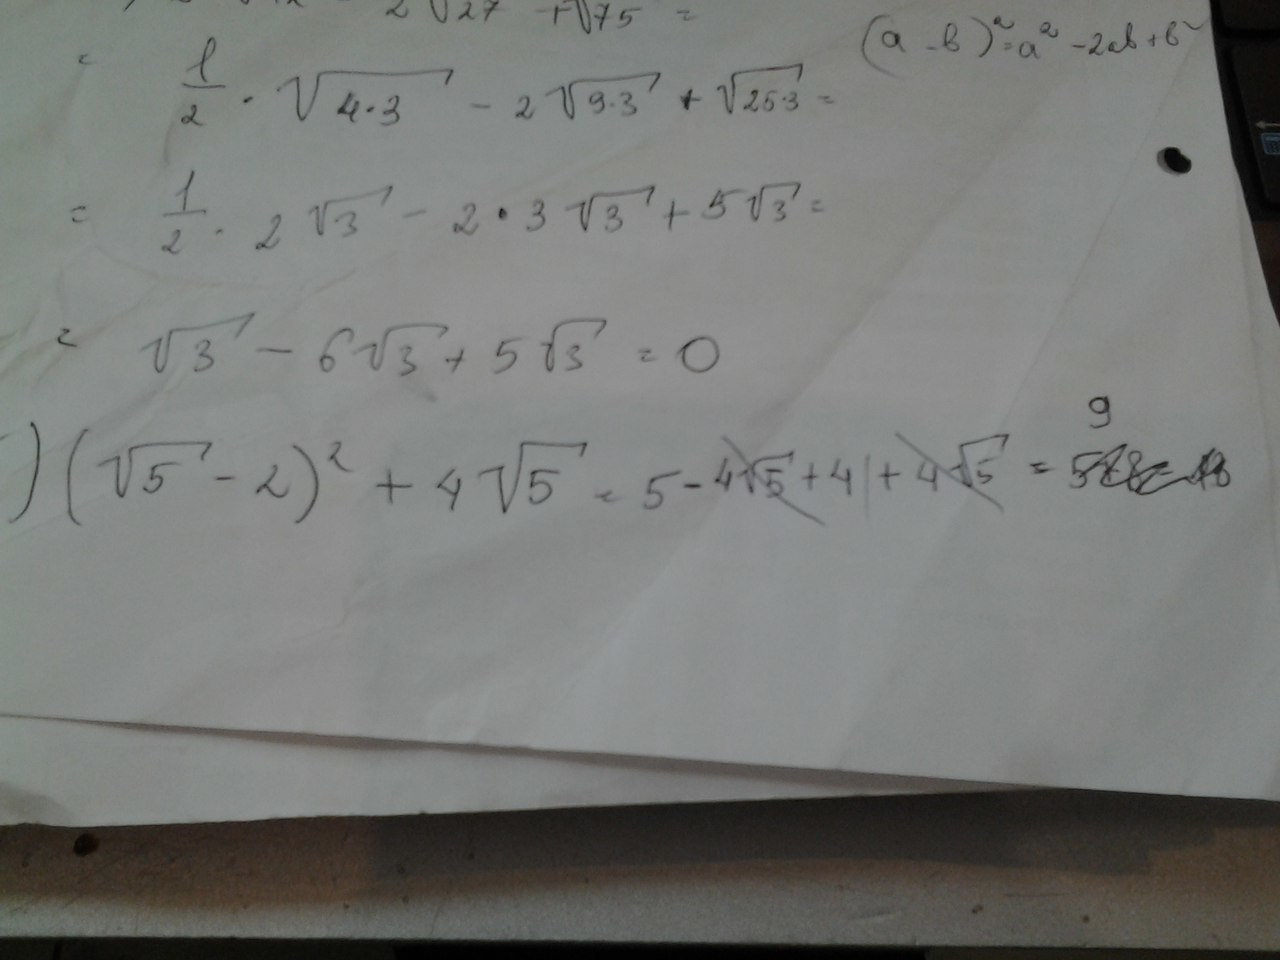 2√27 + √75 =
(a - b)² = a² - 2ab + b²
= 1/2 · √4·3 - 2√9·3 + √25·3 =
= 1/2 · 2√3 - 2·3√3 + 5√3 =
= √3 - 6√3 + 5√3 = 0
) (√5 - 2)² + 4√5 = 5 - 4√5 + 4 | + 4√5 = 9